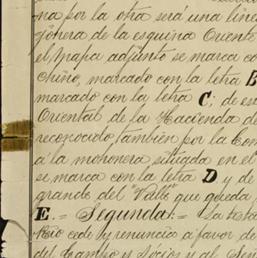 na por la otra será una linea
jonera de la esquina Oriente
el mapa adjunto se marca co
Chino, marcado con la letra B
marcado con la letra C; de es
Oriental de la Hacienda de
reconocido tambien por la Com
á la mohonera situada en el
se marca con la letra D y de
grande del "Valle" que queda
E. = Segunda: = La testa
cede y renuncia a favor de
del Campo y Sócios y al Señ